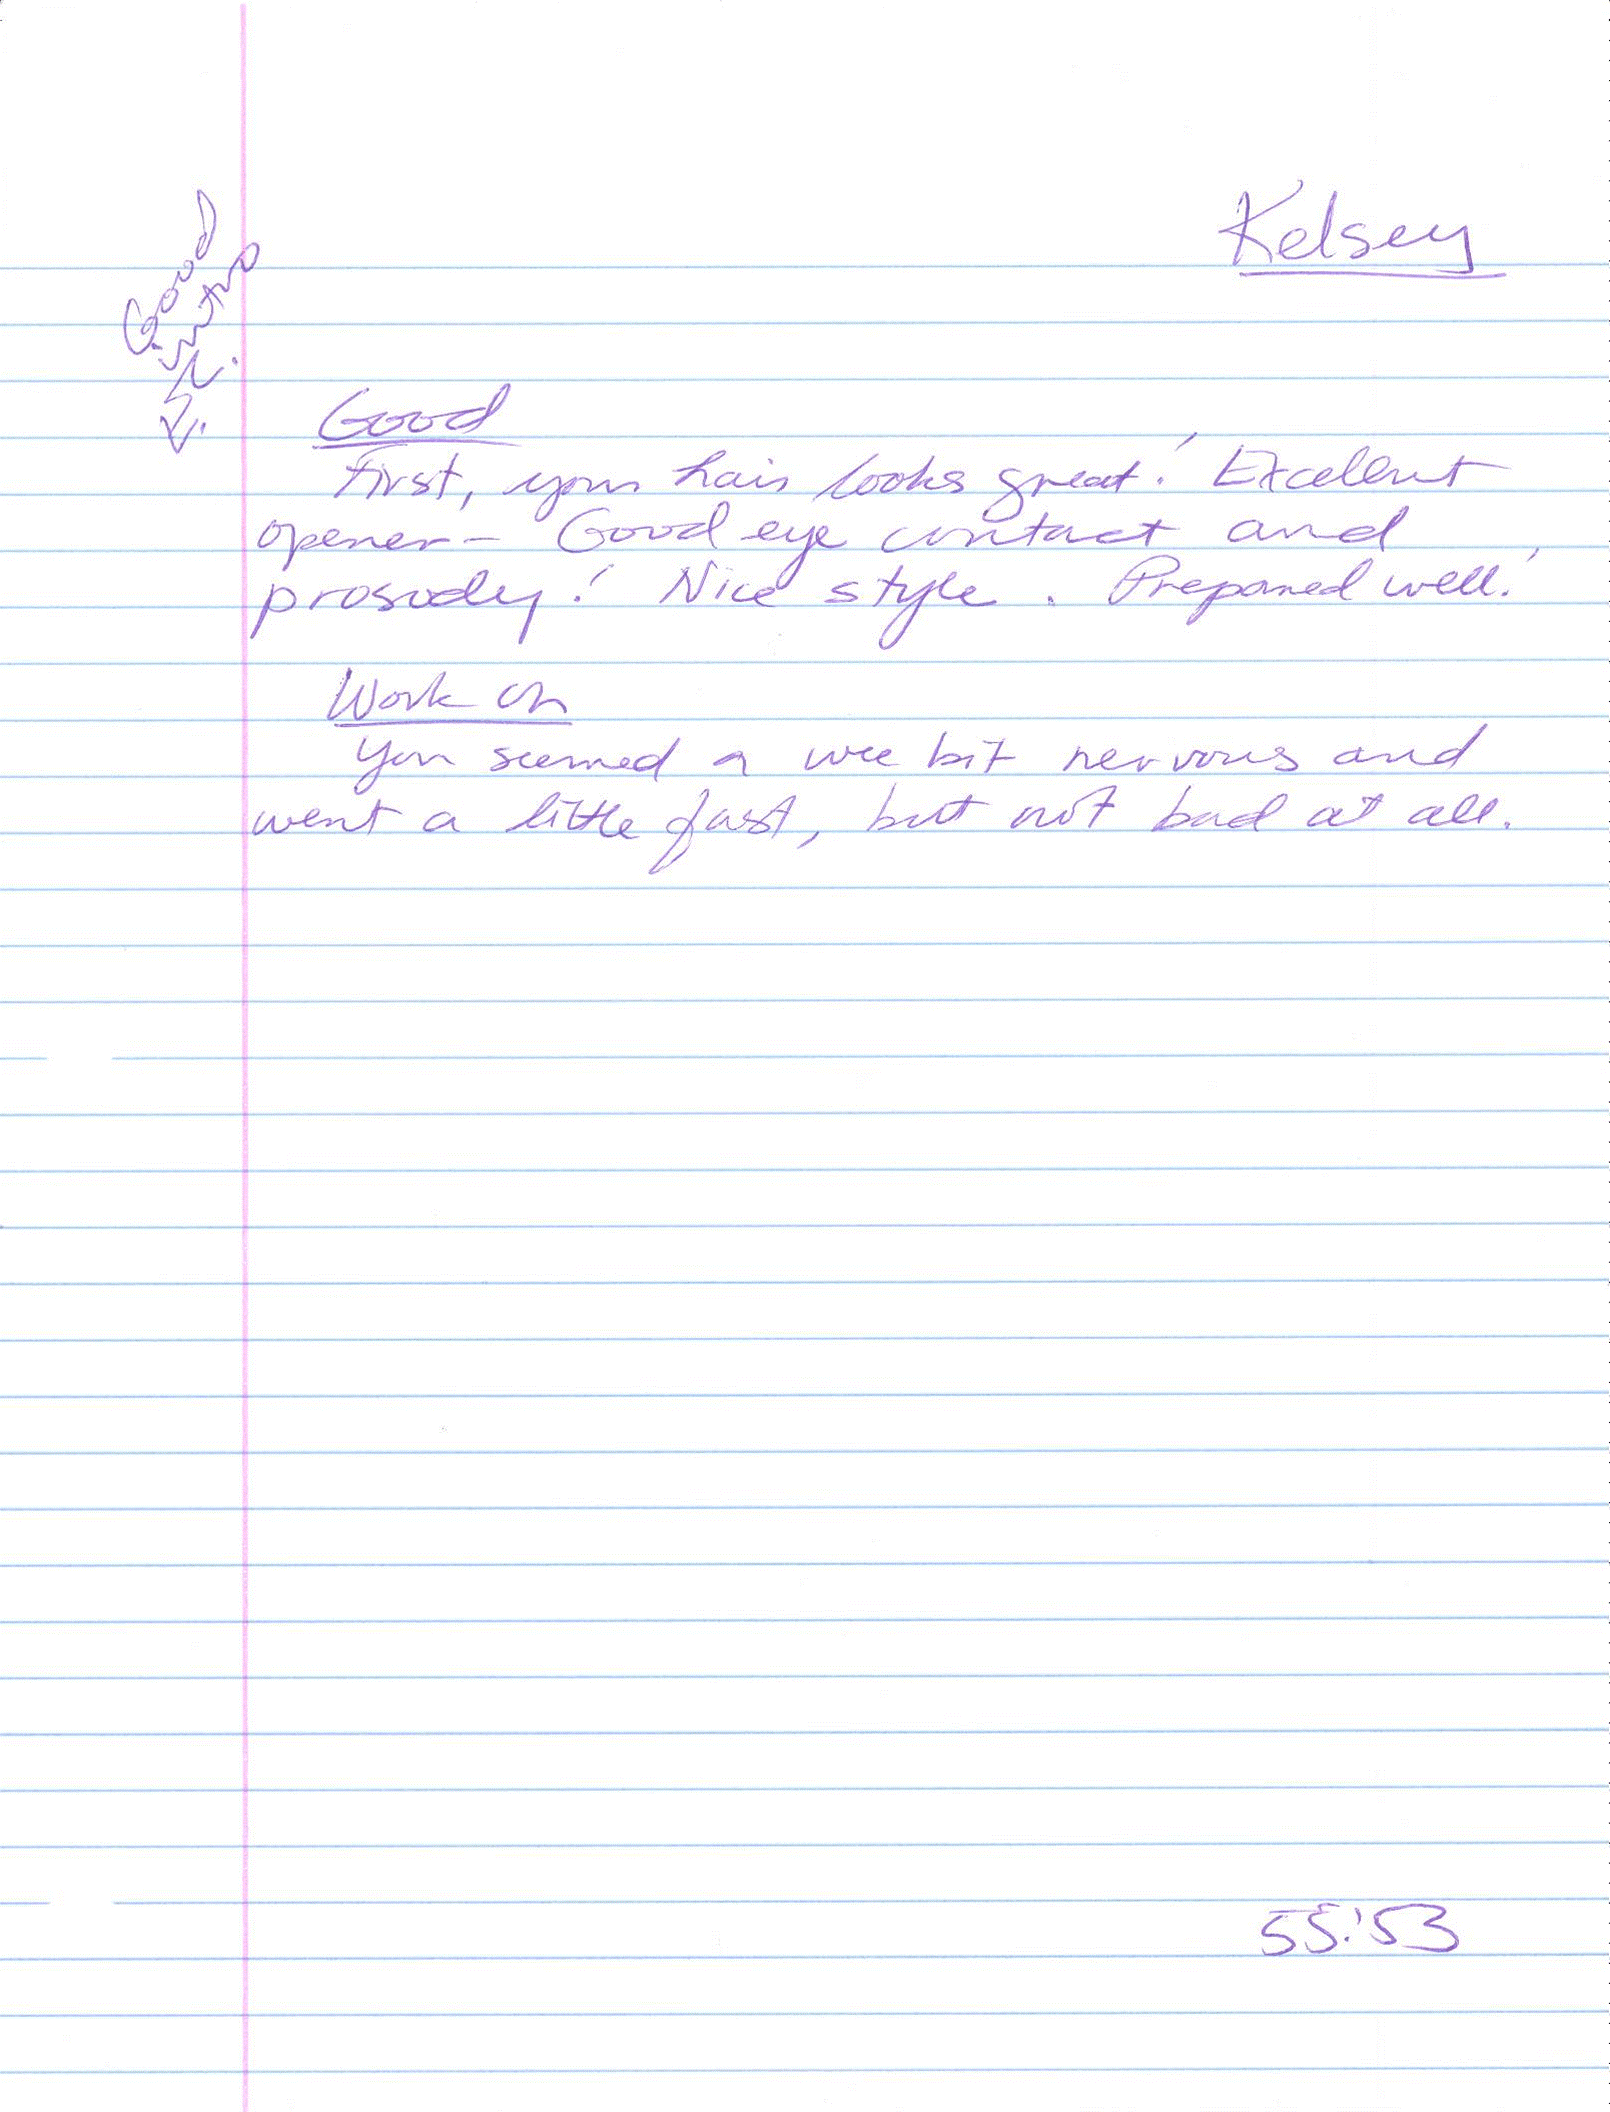 Kelsey
Good
intro
Good
First, your hair looks great! Excellent
opener- Good eye contact and
prosody! Nice style. Prepared well!
Work on
You seemed a wee bit nervous and
went a little fast, but not bad at all.
55:53